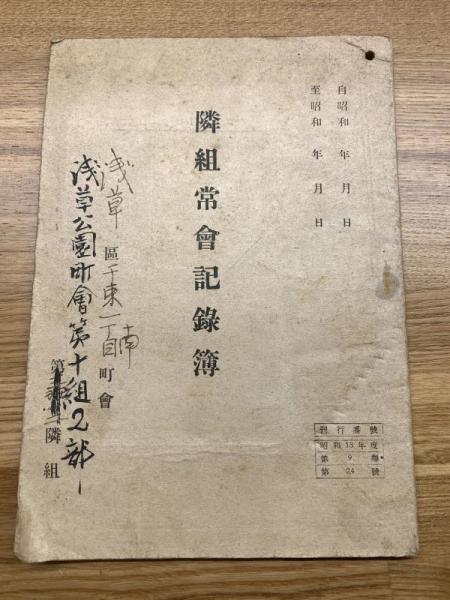 自昭和 年 月 日
至昭和 年 月 日
隣組常會記錄簿
刊行番號
昭和13年度
第 9 類
第 24 號
浅草 區 千束一丁目南 町會
浅草公園町會第十組2部
第 隣組